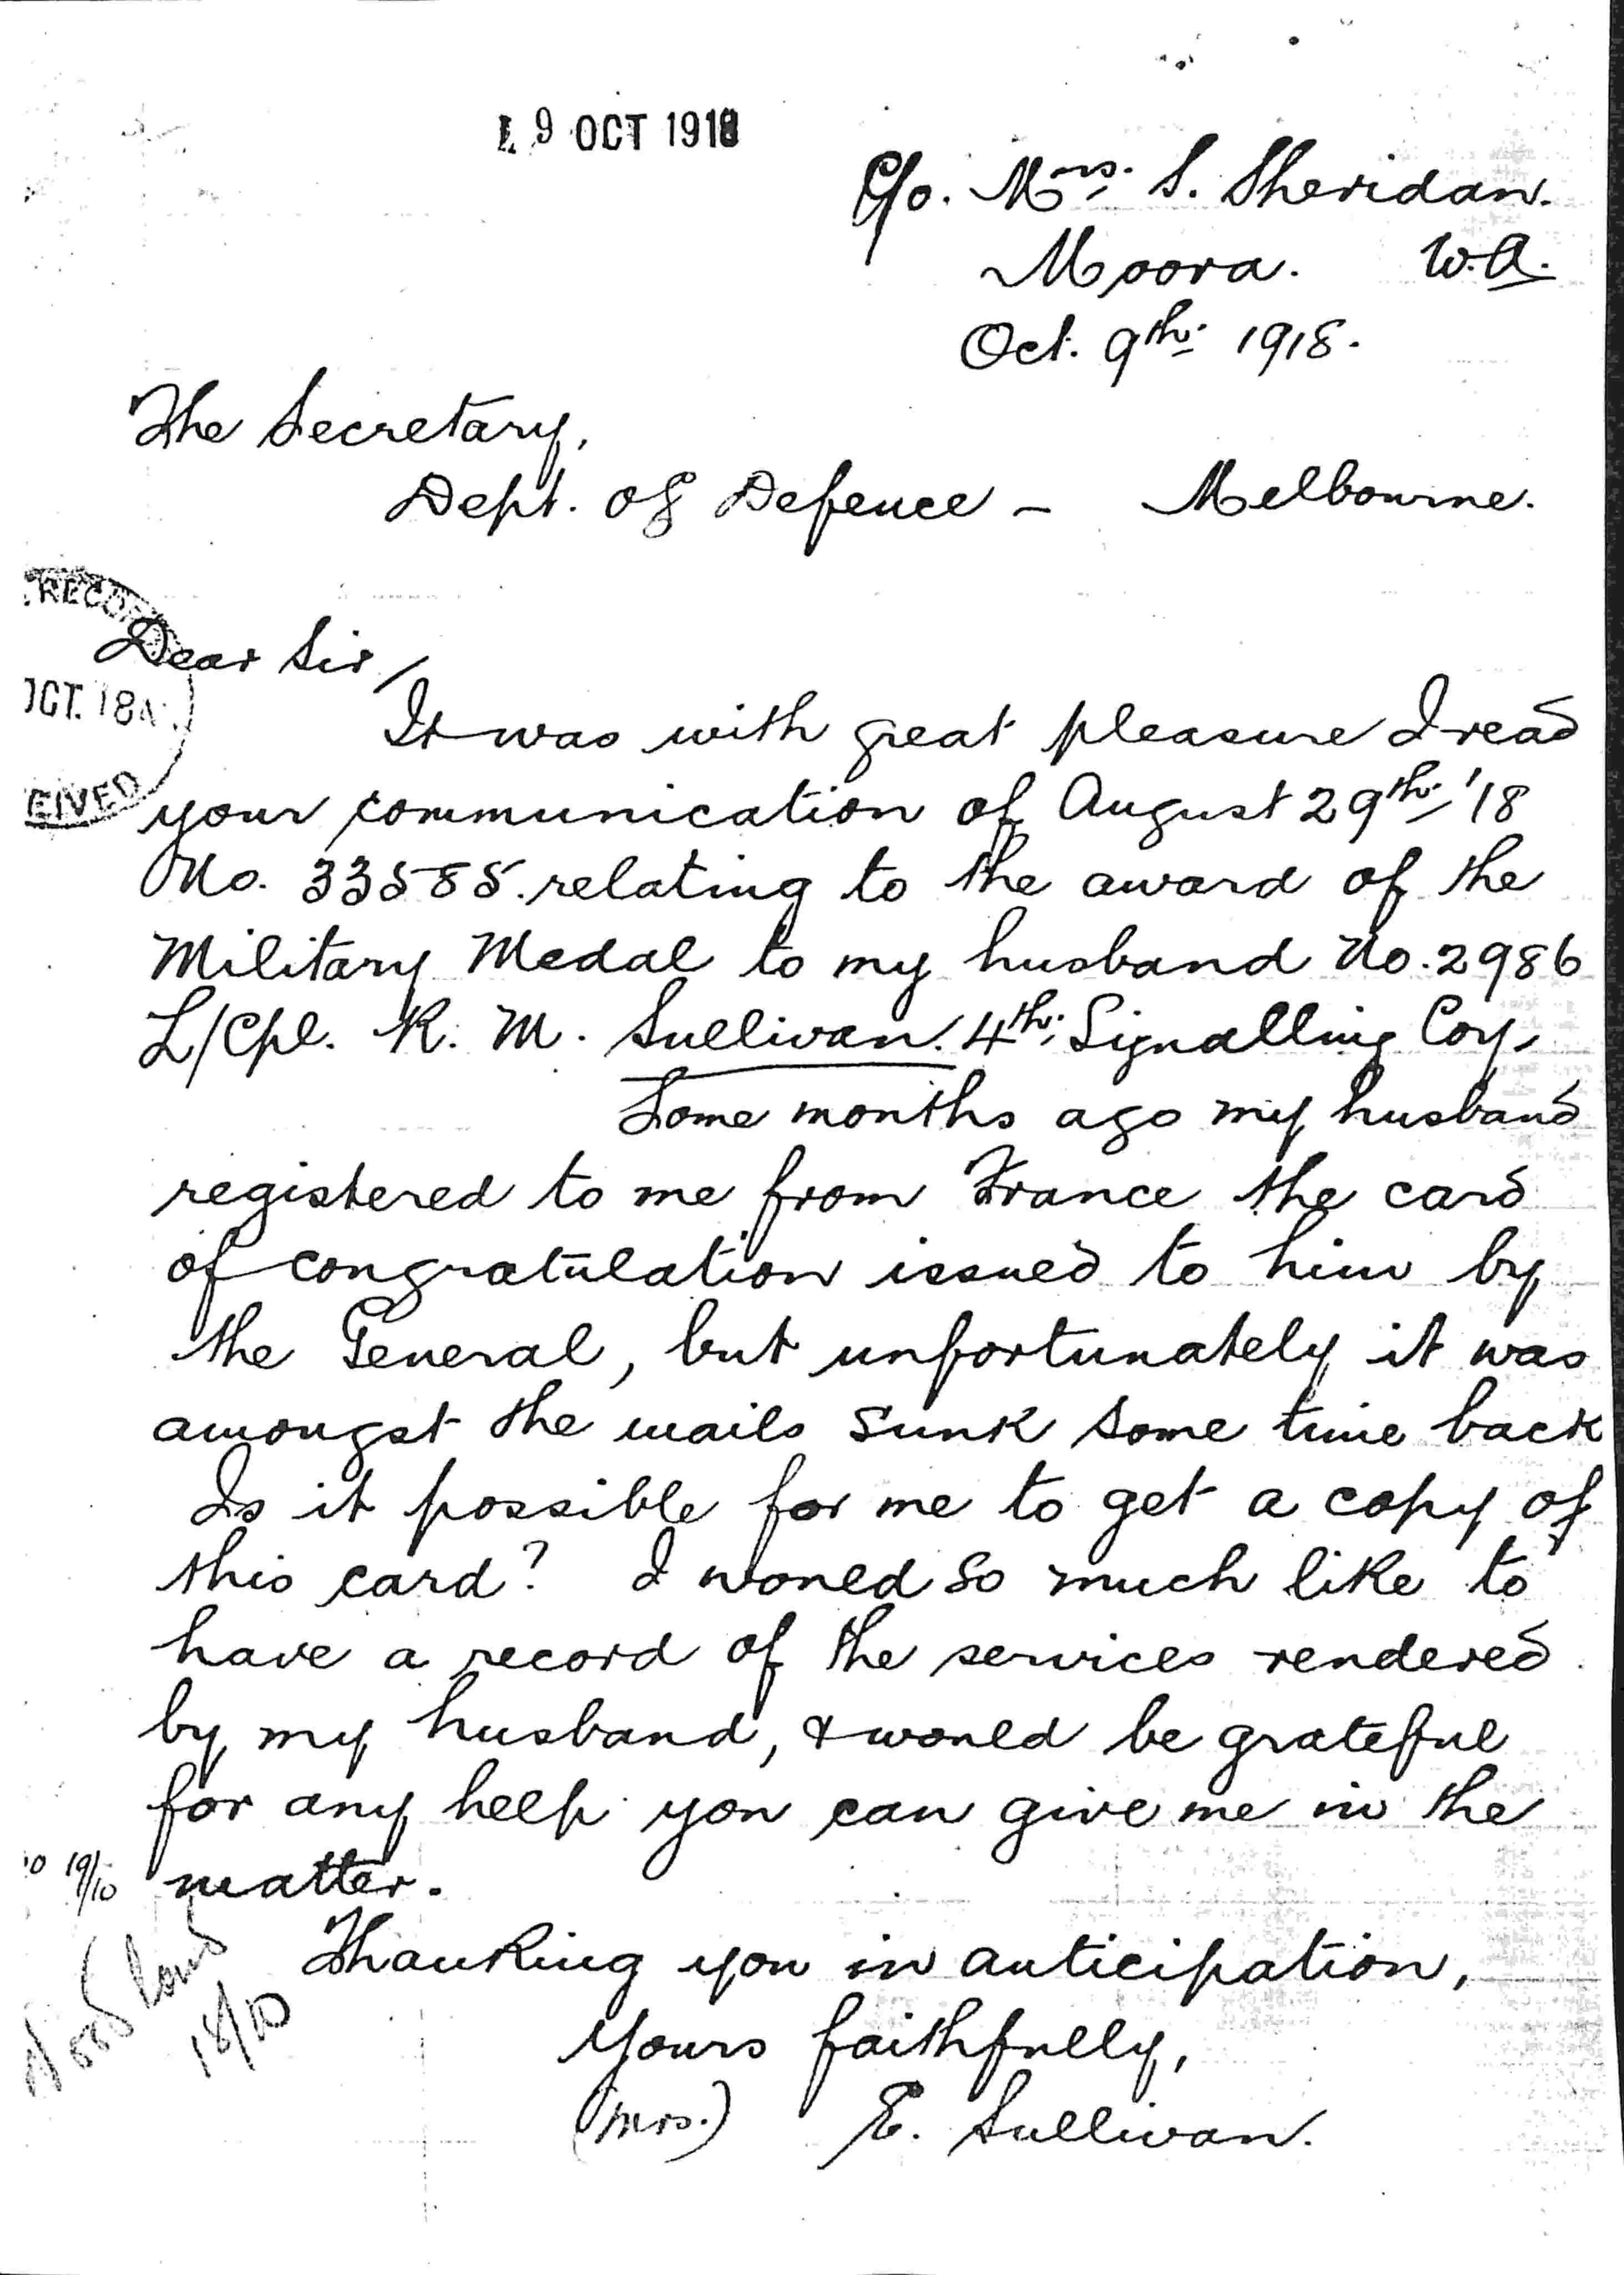 19 OCT 1918
C/o. Mrs. S. Sheridan.
Moora. W.A.
Oct. 9th. 1918.
The Secretary,
Dept. of Defence – Melbourne.
RECORD
Dear Sir,
OCT. 18
It was with great pleasure I read
EIVED
your communication of August 29th. '18
No. 33585. relating to the award of the
Military Medal to my husband No. 2986
L/Cpl. K. M. Sullivan. 4th. Signalling Coy.
Some months ago my husband
registered to me from France the card
of congratulation issued to him by
the General, but unfortunately it was
amongst the mails sunk some time back
Is it possible for me to get a copy of
this card? I would so much like to
have a record of the services rendered
by my husband, & would be grateful
for any help you can give me in the
19/10 matter.
Thanking you in anticipation,
18/10
Yours faithfully,
(Mrs.) E. Sullivan.